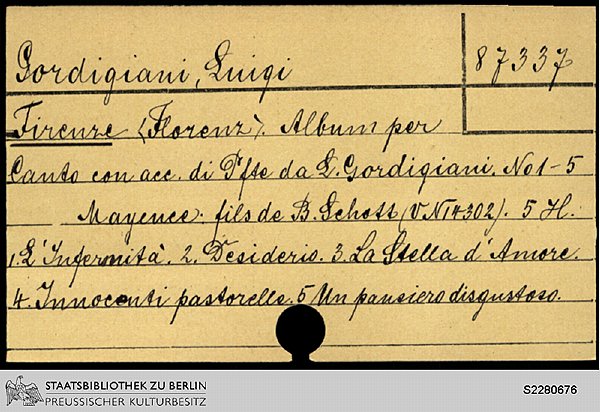 Gordigiani, Luigi
87337
Firenze (Florenz). Album per
Canto con acc. di Pfte da L. Gordigiani. No 1-5
Mayence. fils de B. Schott (VN 14302). 5 H.
1. L'Infermità. 2. Desiderio. 3. La Stella d'Amore.
4. Innocenti pastorelle. 5 Un pansiero disgustoso.
STAATSBIBLIOTHEK ZU BERLIN
PREUSSISCHER KULTURBESITZ
S2280676